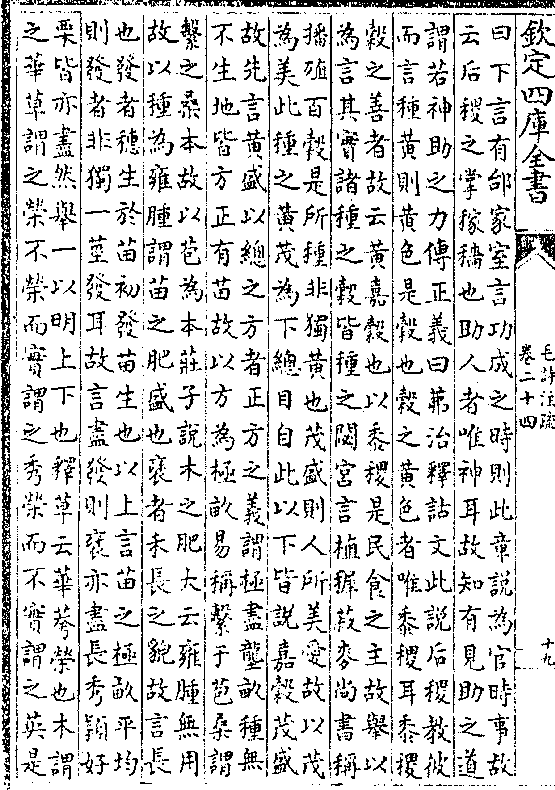 欽定四庫全書
毛詩注疏
卷二十四
十九
曰下言有邰家室言功成之時則此章說為官時事故
云后稷之掌稼穡也助人者唯神耳故知有見助之道
謂若神助之力傳正義曰茀治釋詁文此說后稷教彼
而言種黃則黃色是穀也穀之黃色者唯黍稷耳黍稷
穀之善者故云黃嘉穀也以黍稷是民食之主故舉以
為言其實諸種之穀皆種之閟宮言植穉菽麥尚書稱
播殖百穀是所種非獨黃也茂盛則人所美愛故以茂
為美此種之黃茂為下總目自此以下皆說嘉穀茂盛
故先言黃盛以總之方者正方之義謂極盡壟畝種無
不生地皆方正有苗故以方為極畝易稱繫于苞桑謂
繫之桑本故以苞為本莊子說木之肥大云雍腫無用
故以種為雍腫謂苗之肥盛也褎者禾長之貌故言長
也發者穗生於苗初發苗生也以上言苗之極畝平均
則發者非獨一莖發耳故言盡發則褎亦盡長秀穎好
栗皆亦盡然舉一以明上下也釋草云華荂榮也木謂
之華草謂之榮不榮而實謂之秀榮而不實謂之英是